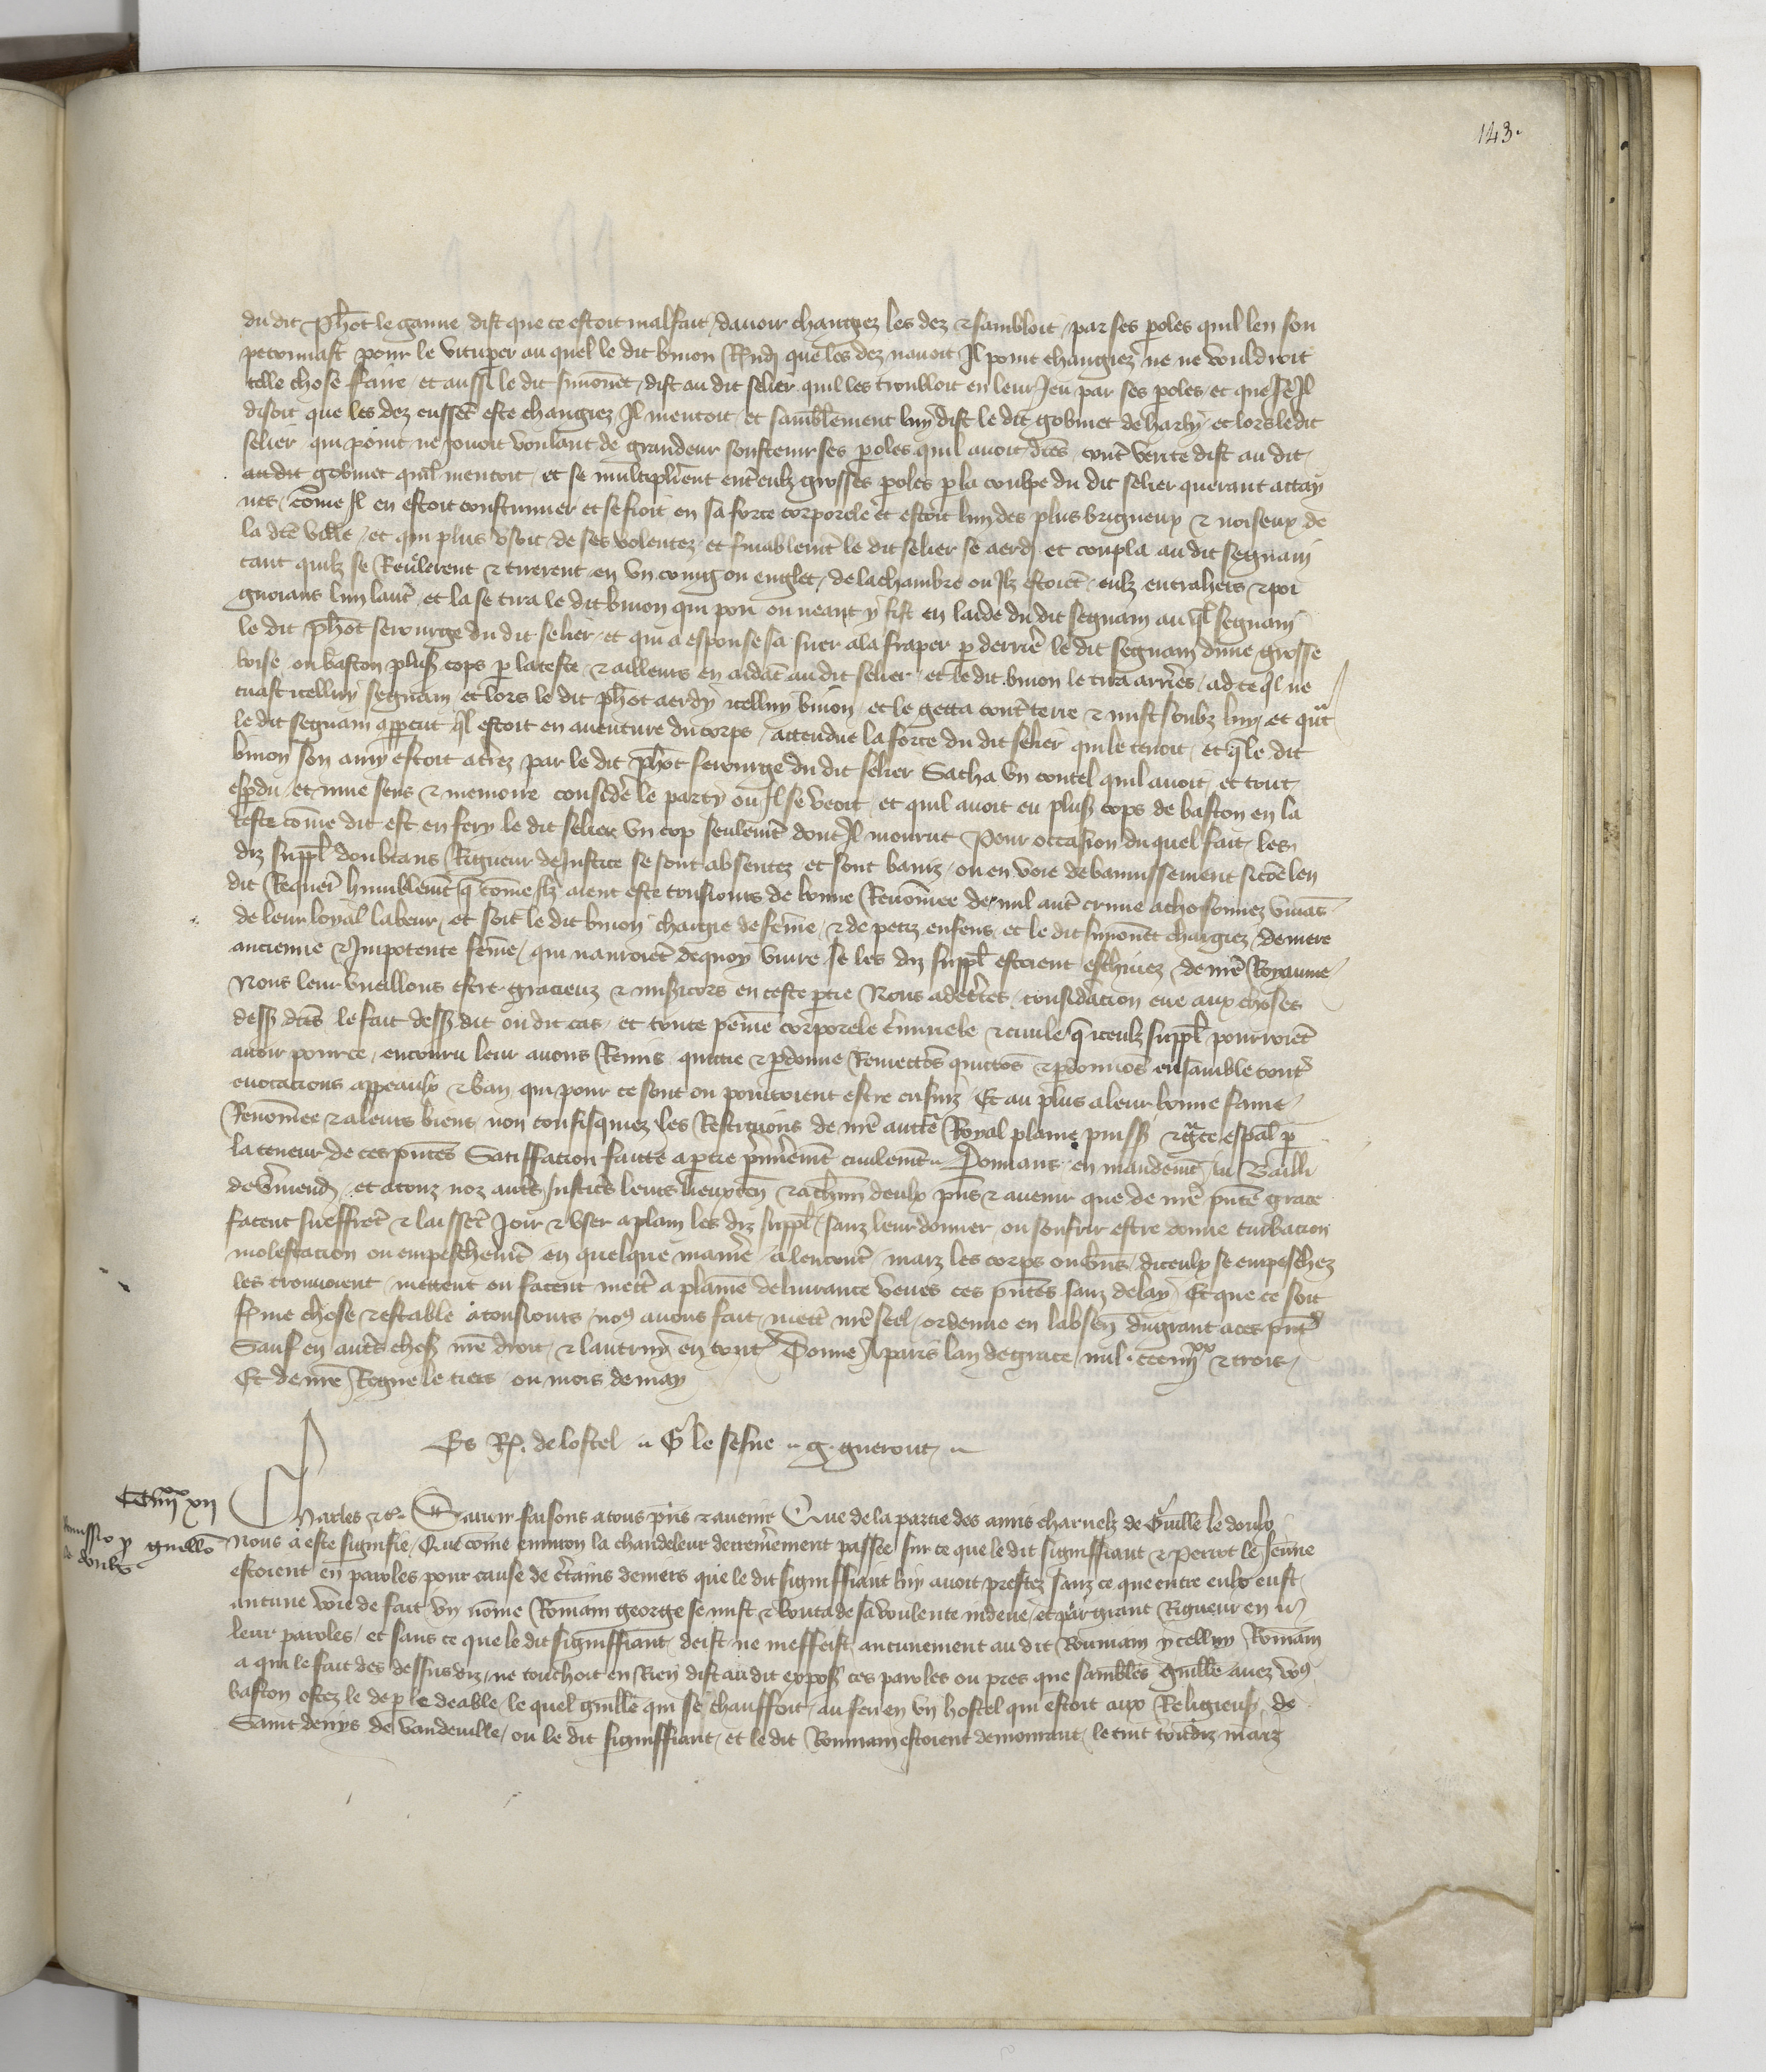 143.
du dit Phot le ganne dist que ce estoit malfait davoir changiez les dez & sambloit par ses poles quil len son
peconnast pour le vituper au quel le dit binon Rndi que les dez navoit Il point changiez ne ne vouldroit
telle chose faire et aussi le dit simonet dist au dit selier quil les troubloit en leur Jeu par ses poles et que se Il
disoit que les dez eussent este changiez Il mentoit et samblement luy dist le dit gobinet de harly et lors le dit
selier qui point ne Jouoit voulant de grandeur soustenir ses poles quil avoit dces contre verite dist au dit
au dit gobinet quil mentoit et se multiplierent entreulz grosses poles p la coulpe du dit selier querant attay
nes come Il en estoit coustumier et se fioit en sa force corporele et estoit luy des plus brigueux & noiseux de
la dce ville et qui plus usoit de ses volentez et finablemt le dit selier se aerdi et coupla au dit seguain
tant quilz se Reulerent & tirerent en un coing ou englet de la chambre ou Ilz estoiet eulz entrahers & poi
gnoians lun laut et la se tira le dit binon qui pou ou neant y fist en laide du dit seguain au ql seguain
le dit phot serourge du dit selier et qui a espouse sa suer ala fraper p derrie le dit seguain dune grosse
boise ou baston plus cops p la teste & ailleurs en aidat au dit selier et le dit binon le tira arries ad ce ql ne
tuast icelluy seguain et lors le dit phot aerdy icelluy binon et le getta cont terre & mist soubz luy et qut
le dit seguain appeut ql estoit en aventure du corps attendue la force du dit selier qui le tenoit et q le dit
binon son amy estoit atrez par le dit phot serourge du dit selier Sacha un coutel quil avoit et tout
espdu et mue sens & memoire considere le party ou Il se veoit et quil avoit eu plus cops de baston en la
teste come dit est en fery le dit selier un cop seulemt dont Il mourut Pour occasion du quel fait les
diz suppl doubtans Rigueur de Justice se sont absentez et sont baniz ou en voie de bannissement si coe len
dit Requer humblemt q come Ilz aient este tousiours de bonne Renomee de nul aut crime achoisonnez vivas
de leur loyal labeur et soit le dit binon chargie de feme & de petiz enfens et le dit simonet chargiez de mere
ancienne & Impotente feme qui nauroiet de quoy vivre se les diz suppl estoient eschivez de nre Royaume
Nous leur vueillons estre gracieux & misicors en ceste ptie Nous adecertes consideracion eue aux choses
dess dces le fait dess dit ou dit cas et toute peine corporele criminele & civile q iceulz suppl pourroiet
avoir pour ce encouru leur avons Remis quictie & pdonne Remettos quittos & pdonnos ensamble tout
evocacions appeaulx & ban qui pour ce sont ou pourroient estre ensuiz Et au plus a leur bonne fame
Renomee & a leurs biens non confisquiez les Restituons de nre auctte Royal plaine puiss & gce espal p
la teneur de ces pntes Satisfacion faitte a ptie pmierement civilemt Donnans en mandemt au Bailli
de Vermend et a touz noz autes Justices leurs lieuxten & a chun deulx pns & avenir que de nre pnte grace
facent sueffret & laissent Joir & user a plain les diz suppl sanz leur donner ou soufrir estre donne turbacion
molestacion ou empeschemt en quelque manie a lencont maiz les corps ou bns diceulx se empeschez
les trouvoient mettent ou facent mett a plaine delivrance veues ces pntes sanz delay Et que ce soit
ferme chose & estable a tousiours nos avons fait mett nre seel ordenne en labsen du grant a ces pnt
Sauf en autes choses nre droit & lautruy en tout Donne A paris lan de grace mil ccc iiii xx & trois
Et de nre Regne le tiers ou mois de may
Es Rq. de lostel G le sesne g. guerout
CCCiiii xx xii
Charles &c. Savoir faisons a tous pns & avenir Que de la partie des amis charnelz de Guille le doulx
Remissio p guillo
le doulx
nous a este signifie Que come environ la chandeleur derrenierement passee sur ce que le dit signiffiant & Perrot le Jeune
estoient en paroles pour cause de certains deniers que le dit signiffiant luy avoit prestez sanz ce que entre eulx eust
aucune voie de fait un nome Romain george se mist & bouta de sa voulente indeue et par grant Rigueur en
leur paroles et sans ce que le dit signiffiant deist ne meffeist aucunement au dit Roumain ycelluy Romain
a qui le fait des dessus diz ne touchoit en Rien dist au dit exposs ces paroles ou pres que samblables guille avez vos
baston ostez le de p le deable le quel guille qui se chauffoit au feu en un hostel qui estoit aux Religieux de
Saint denys de vandeuille ou le dit signiffiant et le dit Roumain estoient demourant le tint tordiz maiz